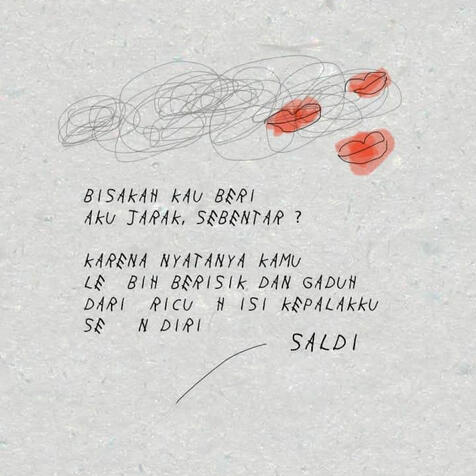 BISAKAH KAU BERI
AKU JARAK, SEBENTAR ?
KARENA NYATANYA KAMU
LE BIH BERISIK DAN GADUH
DARI RICU H ISI KEPALAKKU
SE N DIRI
SALDI